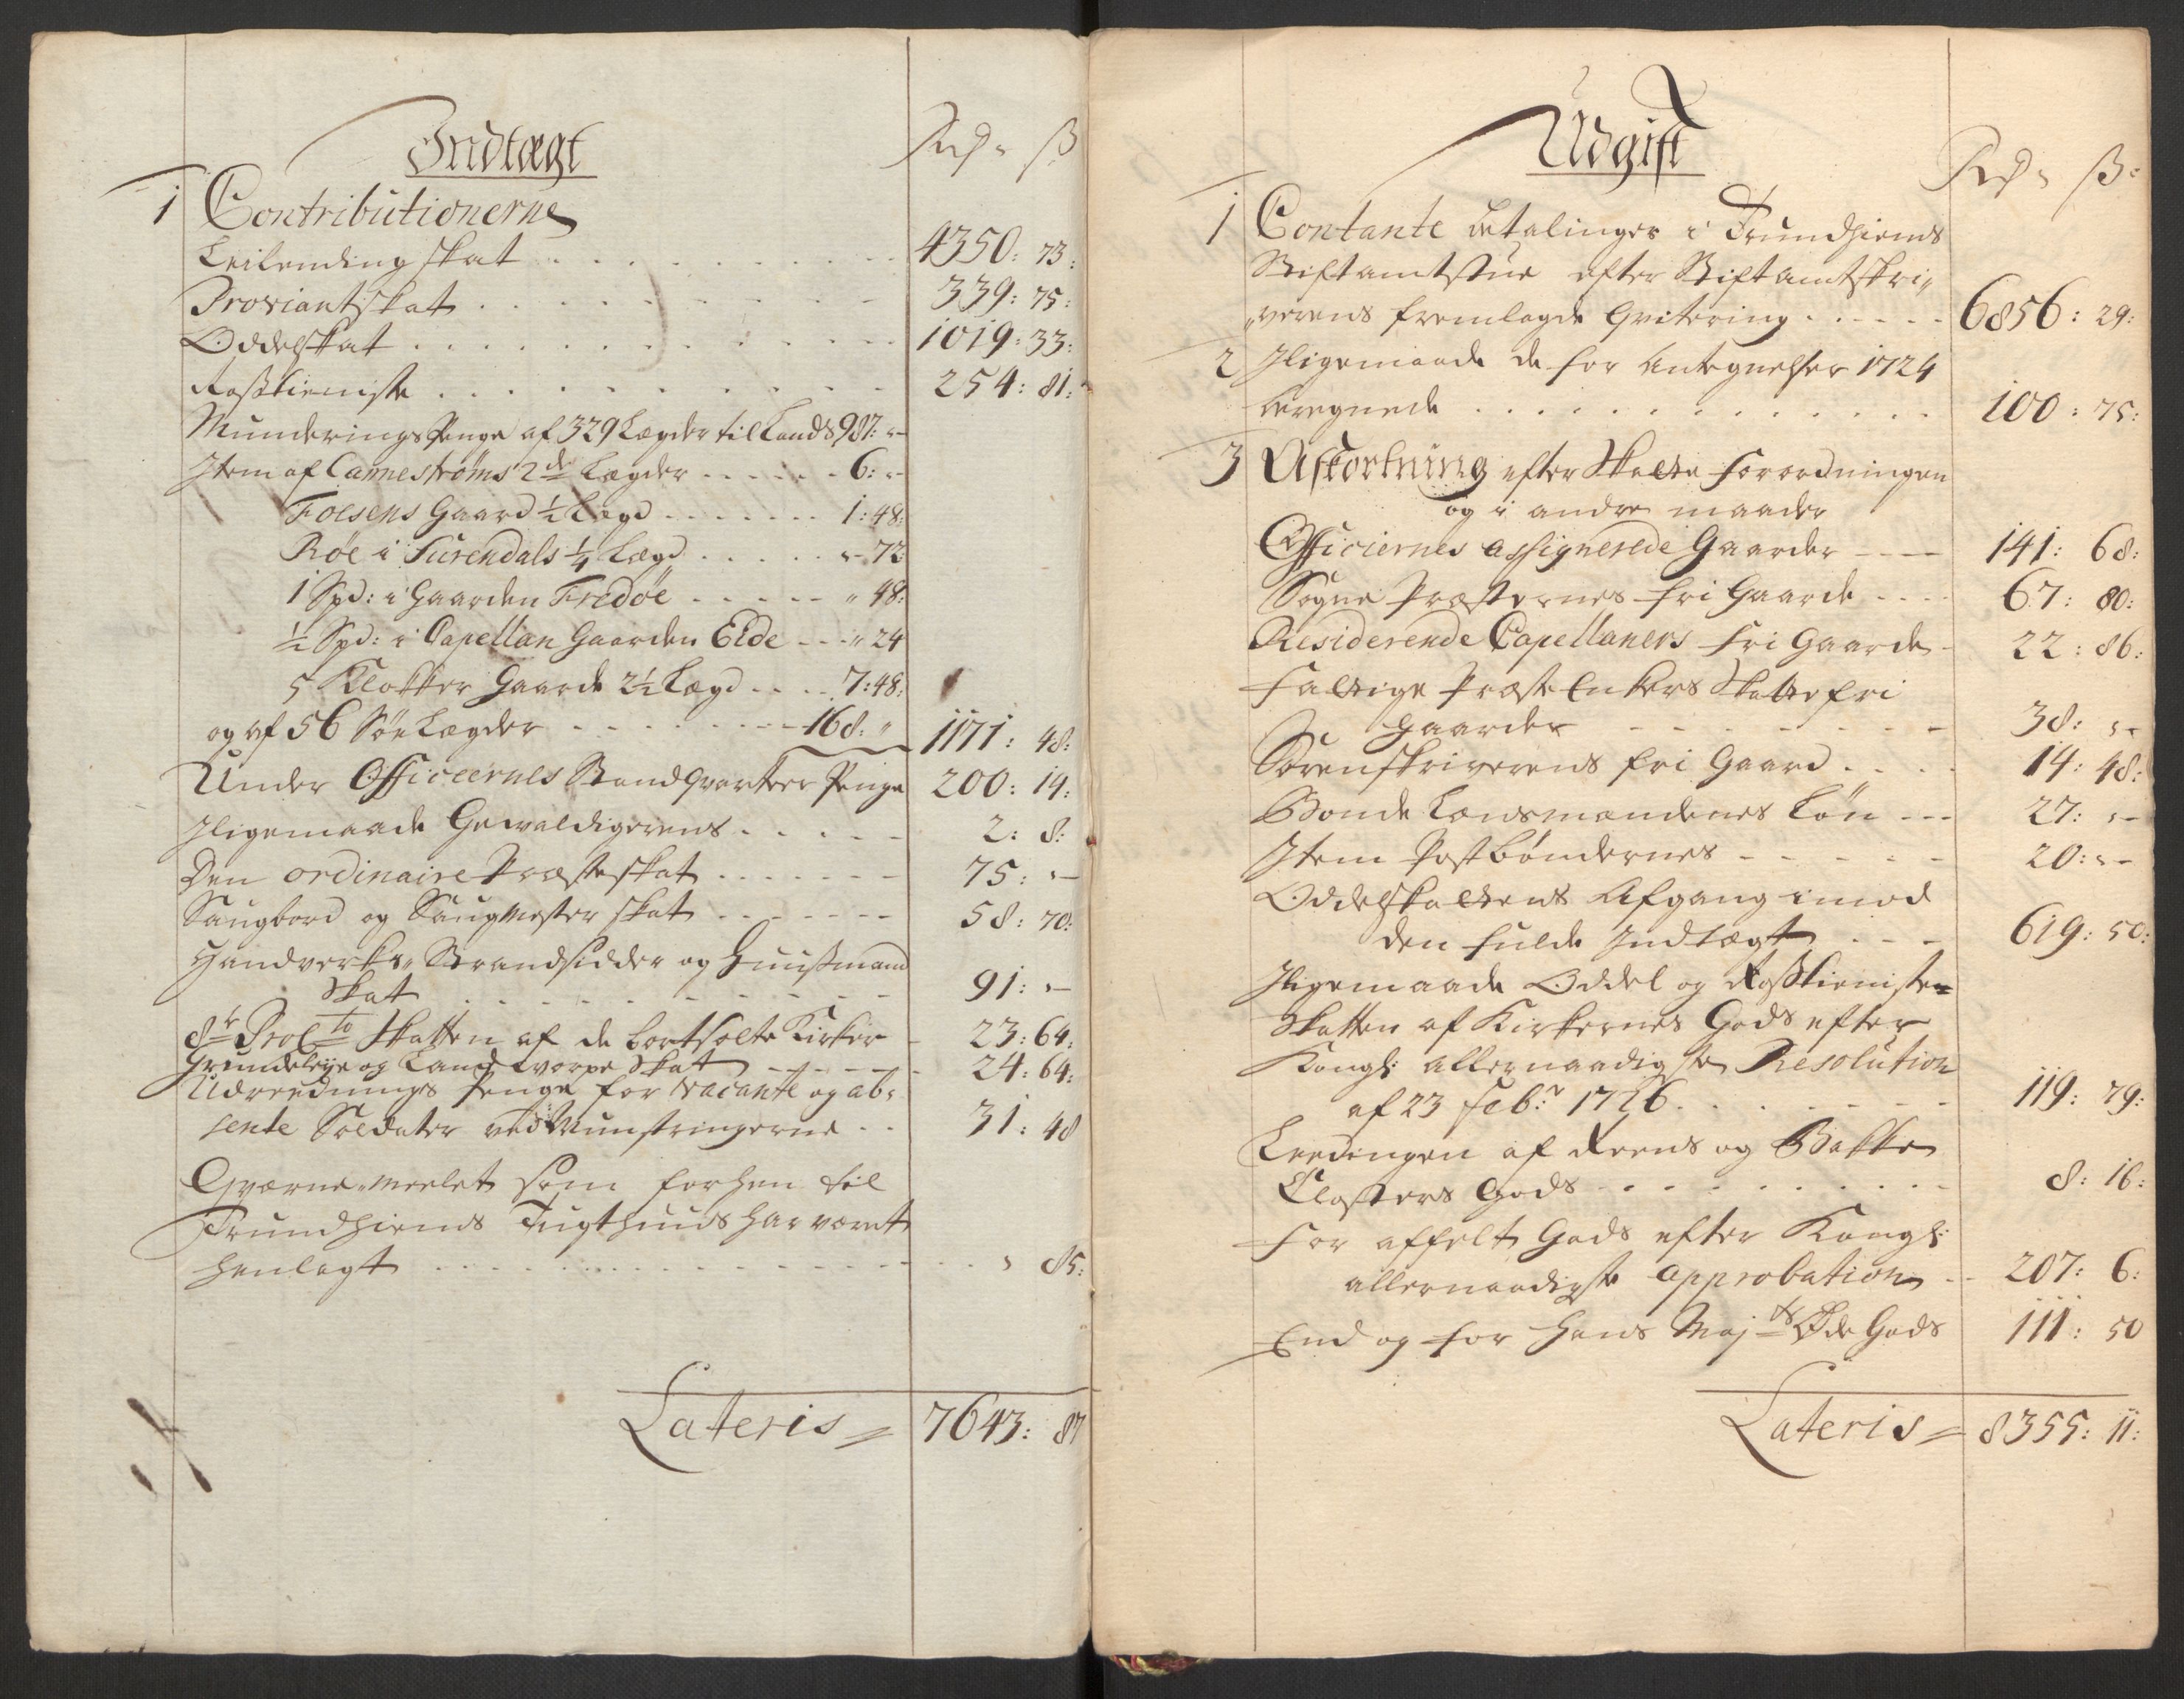 Indtægt
Rdr ß
1 Contributionerne
Leilending skat 4350: 73:
Proviantskat 339: 75:
Oddelskat 1019: 33:
Rosstieniste 254: 81:
Munderings Penge af 329 Lægder til Lands 987: "-
Item af Cannestrøms 2de Lægder 6: "-
Foesens Gaard ½ Lægd 1: 48:
Røe i Surendals ¼ Lægd "- 72
1 Spd: i Gaarden Fredøe " 48:
½ Spd: i Capellan Gaarden Eide " 24
5 Klokker Gaarde 2½ Lægd 7: 48:
og af 56 Søe Lægder 168: " 1171: 48:
Under Officeernes Standqvarteer Penge 200: 19:
Iligemaade Gewaldigerens 2: 8:
Den ordinaire Præsteskat 75: "-
Saugbord og Saugmester skat 58: 70:
Handverks- Strandsidder og Huusmand
Skat 91: "-
Skatten af de bortsolte Kirker 23: 64:
Grundeleye og Land Skat 24: 64:
Udreednings Penge for vacante og ab-
sente Soldater ved Munstringerne 31: 48
Qværne-meelet som forhen til
Trundhiems Tugthuus har været
henlagt " 85:
Lateris = 7643: 87
Udgift
Rdr ß:
1 Contante betalinger i Trundhiems
Stiftamtstue efter Stiftamtskri-
verens fremlagde Qvitering 6856: 29:
2 Iligemaade de for Antegnelser 1724
beregnede 100: 75:
3 Afkortning efter Skatte Forordningen
og i andre maader
Officiernes assignerede Gaarder 141: 68:
Sogne Præsternes fri Gaarde 67: 80:
Residerende Capellaners fri Gaarde 22: 86:
Fattige Præste Enkers Skattefri
Gaarder 38: "-
Sorenskriverens fri Gaard 14: 48:
Bonde Lænsmændenes Løn 27: "-
Item Postbøndernes 20: "-
Oddelskattens Afgang imod
den fulde Indtægt 619: 50:
Iligemaade Oddel og Rosstienisten
Skatten af Kirkernes Gods efter
Kongl: allernaadigste Resolution
af 23 Febr: 1726 119: 79:
Leedingen af Reens og Bakke
Closters Gods 8: 16:
For affelt Gods efter Kongl:
allernaadigste approbation 207: 6:
End og for Hans Majts Øde Gods 111: 50
Lateris = 8355: 11: